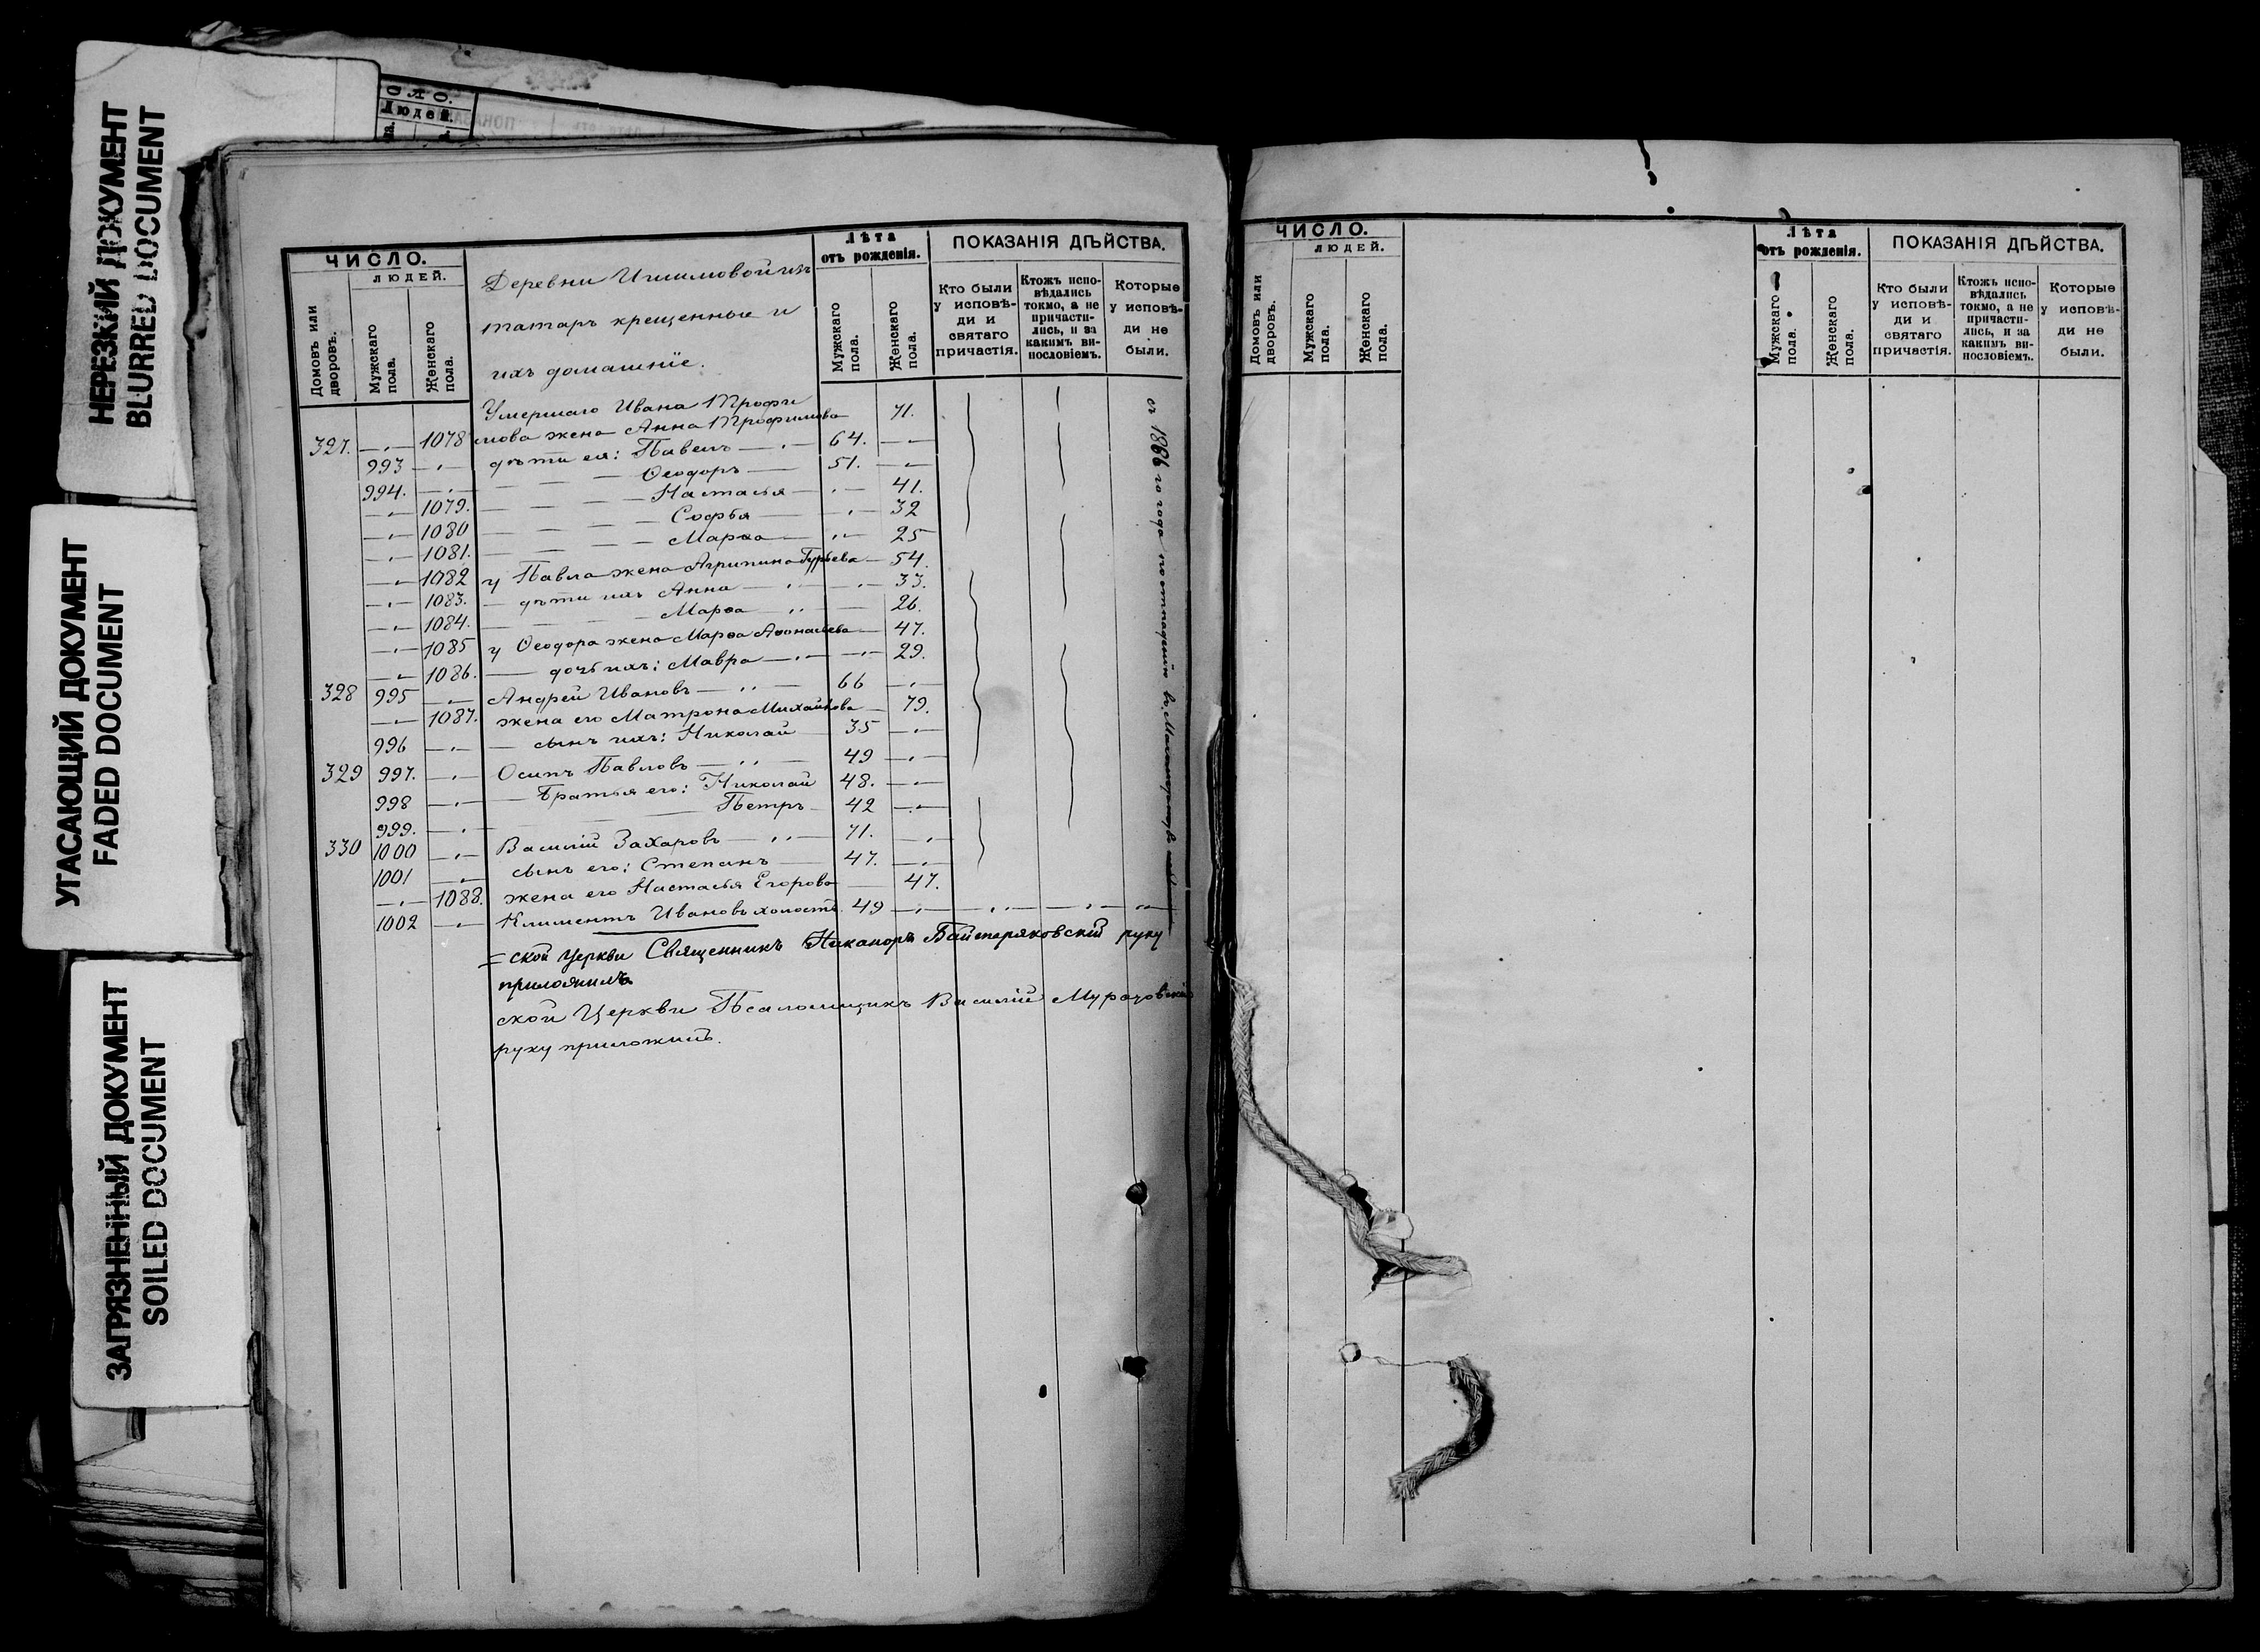 НЕРЕЗКИЙ ДОКУМЕНТ
BLURRED DOCUMENT
УГАСАЮЩИЙ ДОКУМЕНТ
FADED DOCUMENT
ЗАГРЯЗНЕННЫЙ ДОКУМЕНТ
SOILED DOCUMENT
ОЛО.
Людей.
ЧИСЛО.
ЛЮДЕЙ.
Домовъ или дворовъ.
Мужскаго пола.
Женскаго пола.
Деревни Ишимовой изъ
татаръ крещенные и
ихъ домашніе.
Лѣта
отъ рожденія.
Мужскаго пола.
Женскаго пола.
ПОКАЗАНІЯ ДѢЙСТВА.
Кто были у исповѣ-ди и святаго причастія.
Ктожъ испо-вѣдались токмо, а не причасти-лись, и за какимъ ви-нословіемъ.
Которые у исповѣ-ди не были.
Умершаго Ивана Трофи 71.
327. —„— 1078 мова жена Анна Трофимова
993 —„— дѣти ея: Павелъ —„— 64. —„—
994. —„— — — — Ѳеодоръ — 51. —„—
—„— 1079. — — — Настасья —„— 41.
—„— 1080 — — — Софья —„— 32
—„— 1081. — — — Марѳа —„— 25
—„— 1082 у Павла жена Агрипина Гурьева — 54.
—„— 1083. — дѣти ихъ Анна —„— 33.
—„— 1084. — — Марѳа —„— 26.
—„— 1085 у Ѳеодора жена Марѳа Аѳонасьева — 47.
—„— 1086. — дочь ихъ: Мавра —„— 29.
328 995 —„— Андрей Ивановъ —„— 66 —„—
—„— 1087. жена его Матрона Михайлова — 79.
996 —„— — сынъ ихъ: Николай — 35 —„—
329 997. —„— Осипъ Павловъ —„— 49 —„—
998 —„— — Братья его: Николай 48. —„—
999. —„— — — Петръ — 42 —„—
330 1000 —„— Василій Захаровъ —„— 71. —„—
1001 —„— сынъ его: Степанъ — 47. —„—
—„— 1088. жена его Настасья Егорова — 47.
1002 —„— Климентъ Ивановъ холостъ. 49 —„—
съ 1866 го года по отпаденіи въ
=ской Церкви Священникъ Никаноръ Байтеряковскій руку
приложилъ
ской Церкви Псаломщикъ Василій
руку приложилъ.
ЧИСЛО.
ЛЮДЕЙ.
Домовъ или дворовъ.
Мужскаго пола.
Женскаго пола.
Лѣта
отъ рожденія.
Мужскаго пола.
Женскаго пола.
ПОКАЗАНІЯ ДѢЙСТВА.
Кто были у исповѣ-ди и святаго причастія.
Ктожъ испо-вѣдались токмо, а не причасти-лись, и за какимъ ви-нословіемъ.
Которые у исповѣ-ди не были.